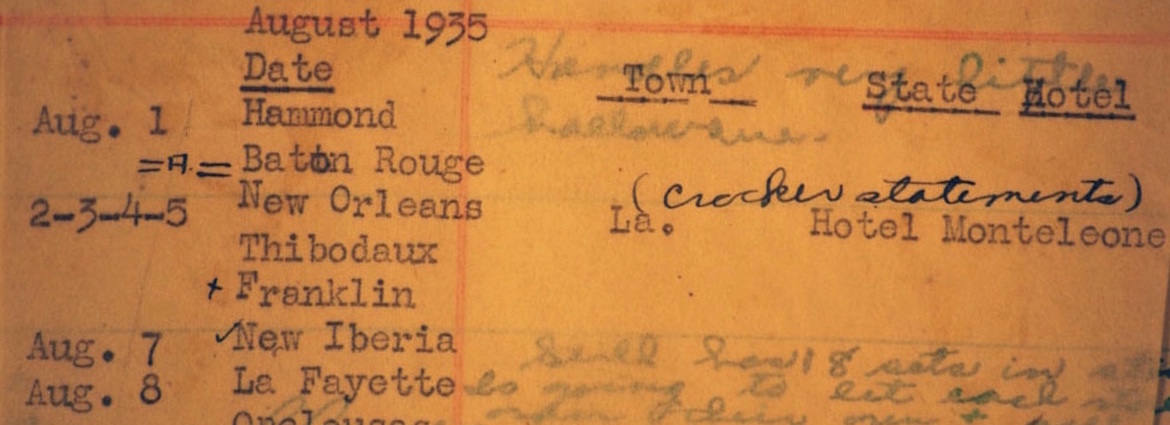 August 1935
Date Town State Hotel
Handles very little
Aug. 1 Hammond
hallowe'ene.
=A.= Baton Rouge
(crocker statements)
2-3-4-5 New Orleans La. Hotel Monteleone
Thibodaux
+ Franklin
Aug. 7 ✓New Iberia
Still has 18 sets in
Aug. 8 La Fayette
is going to let each
Opelousas